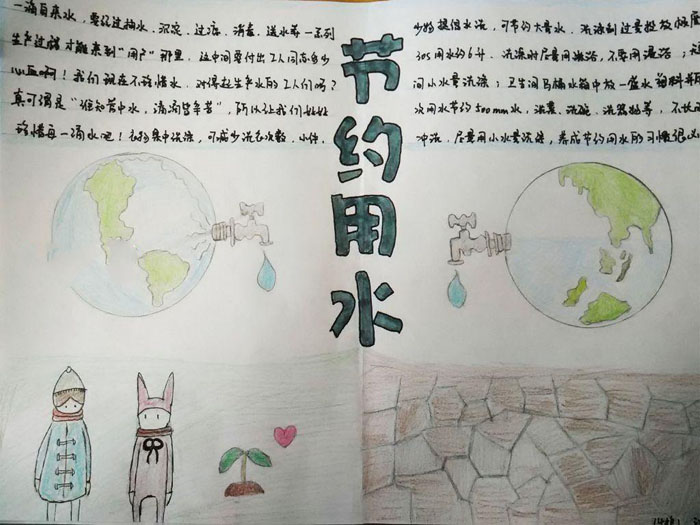 一滴自来水，要经过抽水、沉淀、过滤、消毒、送水等一系列
生产过程才能来到“用户”那里，这中间要付出工人同志多少
心血啊！我们现在不珍惜水，对得起生产水的工人们吗？
真可谓是“谁知管中水，滴滴皆辛苦”，所以让我们好好
珍惜每一滴水吧！衣物集中洗涤，可减少洗衣次数，小件、
节约用水
少物提倡水洗，可节约大量水，洗涤剂过量投放
30s用水约6升，洗澡时尽量用淋浴，不要用盆浴
间小水量洗涤；卫生间马桶水箱中放一盛水塑料瓶
次用水节约500mm水，洗菜、洗碗、洗器物等，不
冲洗，尽量用小水量洗涤，养成节约用水的习惯很